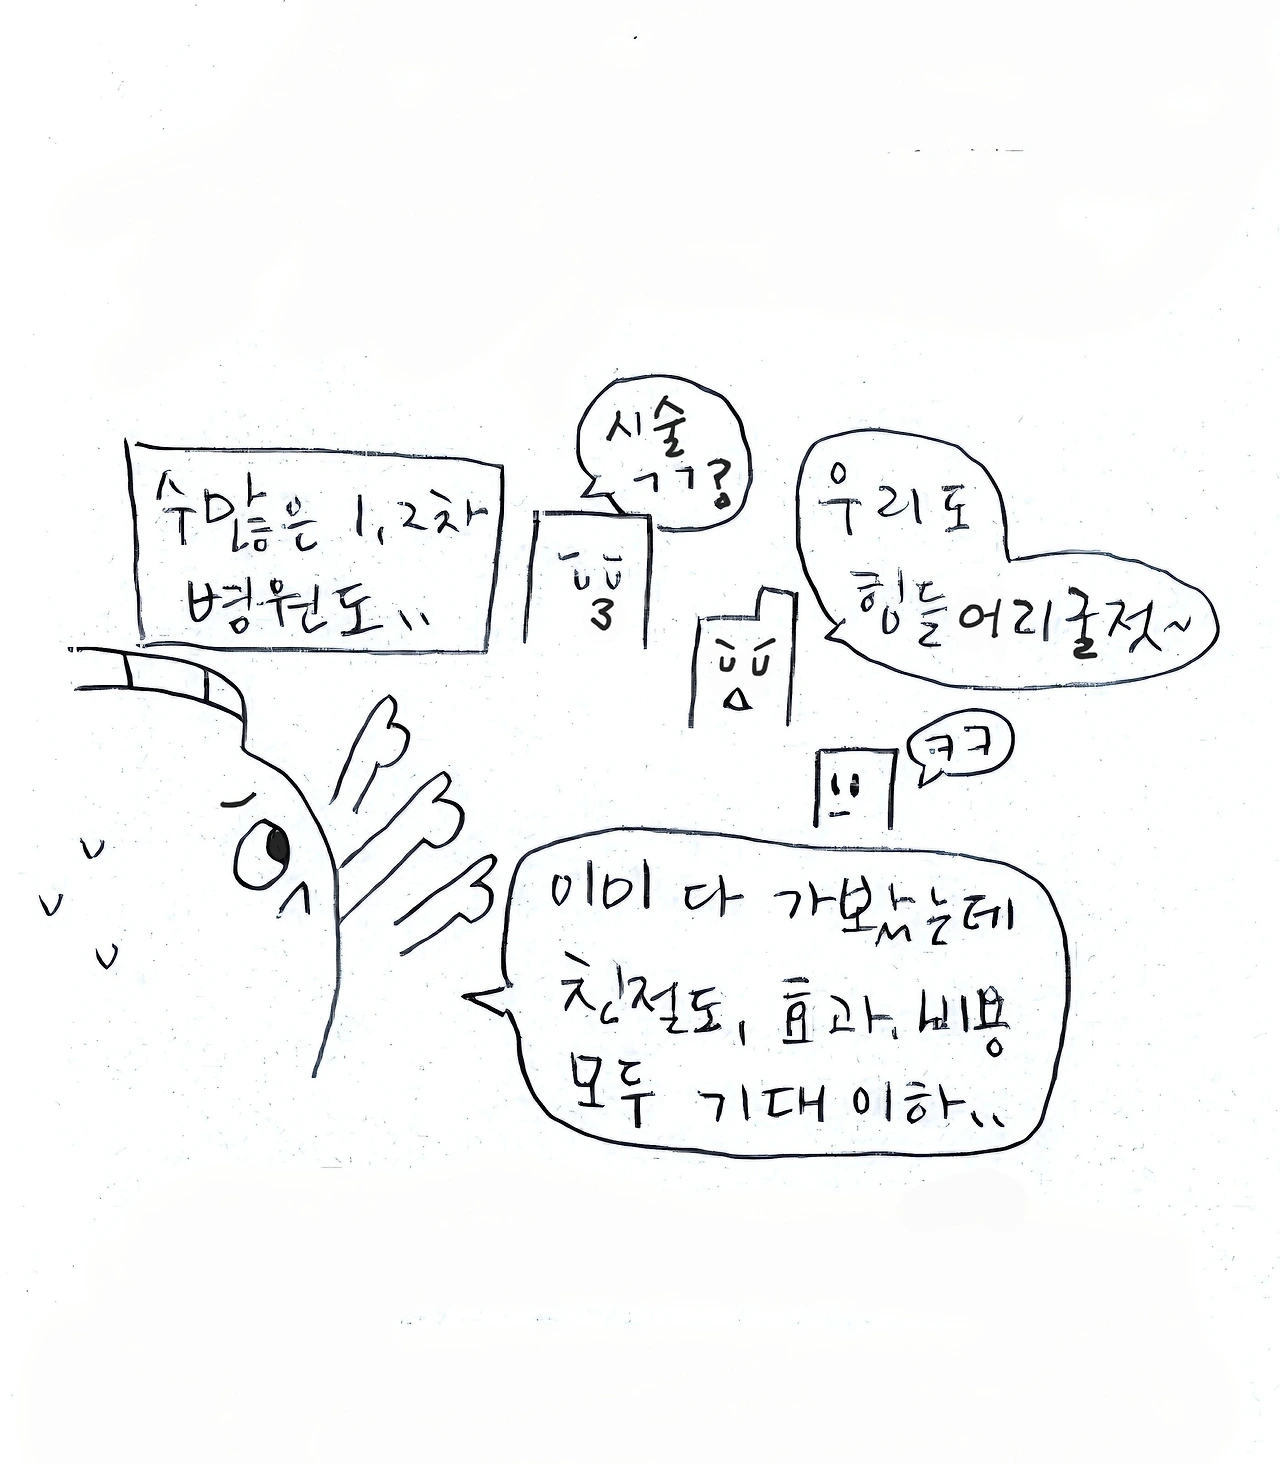 수많은 1,2차
병원도..
시술
ㄱㄱ?
우리도
힘들어리굴젓~
ㅋㅋ
이미 다 가봤는데
친절도, 효과, 비용
모두 기대 이하..